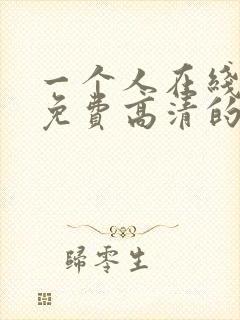 一个人在线
免费高清的
歸零生